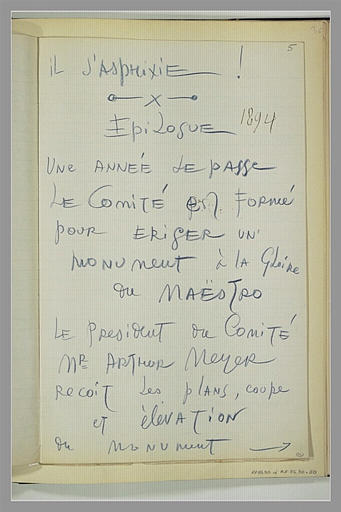 5
il s'Asphixie !
Epilogue 1894
Une ANNEÉ se pASSe
Le Comité est FoRMé
pour ERIGER un
monument à la Gloire
du MAËSTRO
Le president du Comité
Mr ARTHUR Meyer
recoit les plans, coupe
et élévATion
du monument